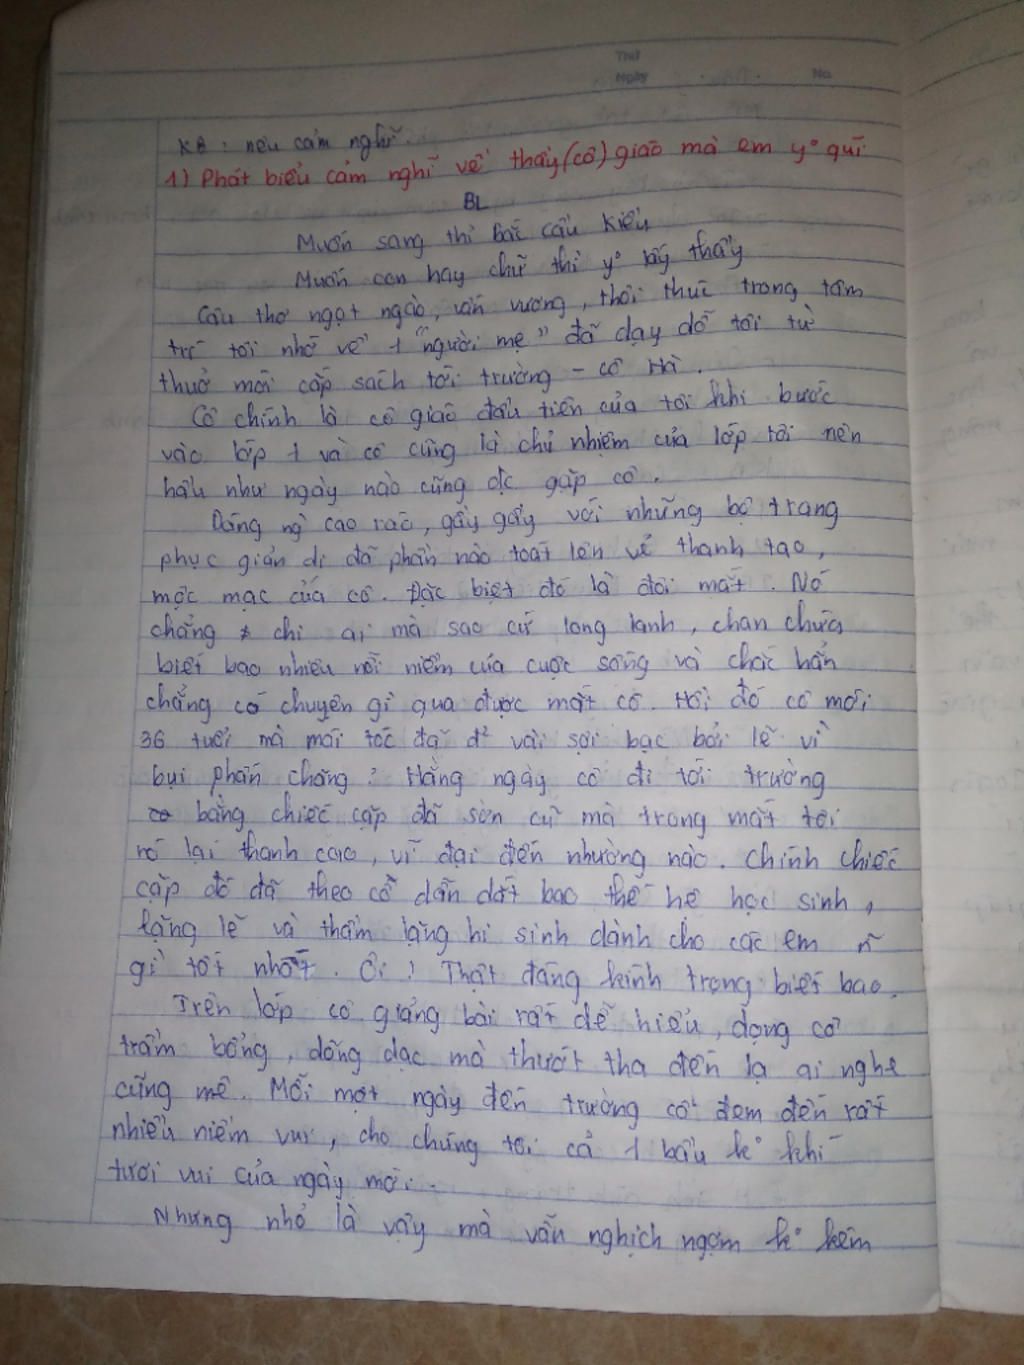 Thứ
Ngày No.
KB: nêu cảm nghĩ.
1) Phát biểu cảm nghĩ về thầy (cô) giáo mà em yº quí
BL
Muốn sang thì bắc cầu Kiều
Muốn con hay chữ thì yº lấy thầy
Câu thơ ngọt ngào, vấn vương, thôi thúc trong tâm
trí tôi nhớ về 1 "người mẹ" đã dạy dỗ tôi từ
thuở mới cắp sách tới trường - cô Hà.
Cô chính là cô giáo đầu tiên của tôi khi bước
vào lớp 1 và cô cũng là chủ nhiệm của lớp tôi nên
hầu như ngày nào cũng đc gặp cô.
Dáng ng` cao ráo, gầy gầy với những bộ trang
phục giản dị đã phần nào toát lên vẻ thanh tao,
mộc mạc của cô. Đặc biệt đó là đôi mắt. Nó
chẳng chỉ ai mà sao cứ long lanh, chan chứa
biết bao nhiêu nỗi niềm của cuộc sống và chắc hẳn
chẳng có chuyện gì qua được mắt cô. Hồi đó cô mới
36 tuổi mà mái tóc đã đ² vài sợi bạc bởi lẽ vì
bụi phấn chăng? Hằng ngày cô đi tới trường
bằng chiếc cặp đã sờn cũ mà trong mắt tôi
nó lại thanh cao, vĩ đại đến nhường nào. Chính chiếc
cặp đó đã theo cô dẫn dắt bao thế hệ học sinh,
lặng lẽ và thầm lặng hi sinh dành cho các em n~
gì tốt nhất. Ôi! Thật đáng kính trọng biết bao.
Trên lớp cô giảng bài rất dễ hiểu, giọng cô
trầm bổng, dõng dạc mà thướt tha đến lạ ai nghe
cũng mê. Mỗi một ngày đến trường cô đem đến rất
nhiều niềm vui, cho chúng tôi cả 1 bầu kº khí
tươi vui của ngày mới.
Nhưng nhỏ là vậy mà vẫn nghịch ngợm kº kém